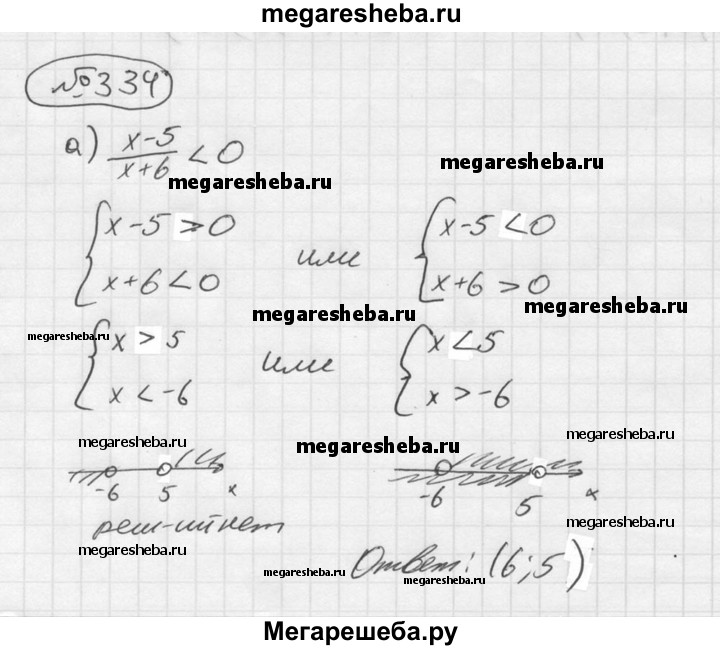 megaresheba.ru
№334
а) x-5 / x+6 < 0
megaresheba.ru
megaresheba.ru
{ x-5 > 0 или { x-5 < 0
{ x+6 < 0 { x+6 > 0
megaresheba.ru
megaresheba.ru
megaresheba.ru
{ x > 5 или { x < 5
{ x < -6 { x > -6
megaresheba.ru
megaresheba.ru
megaresheba.ru
-6 5 x -6 5 x
реш-ий нет
megaresheba.ru
megaresheba.ru
Ответ: (6;5)
megaresheba.ru
megaresheba.ru
Мегарешеба.ру